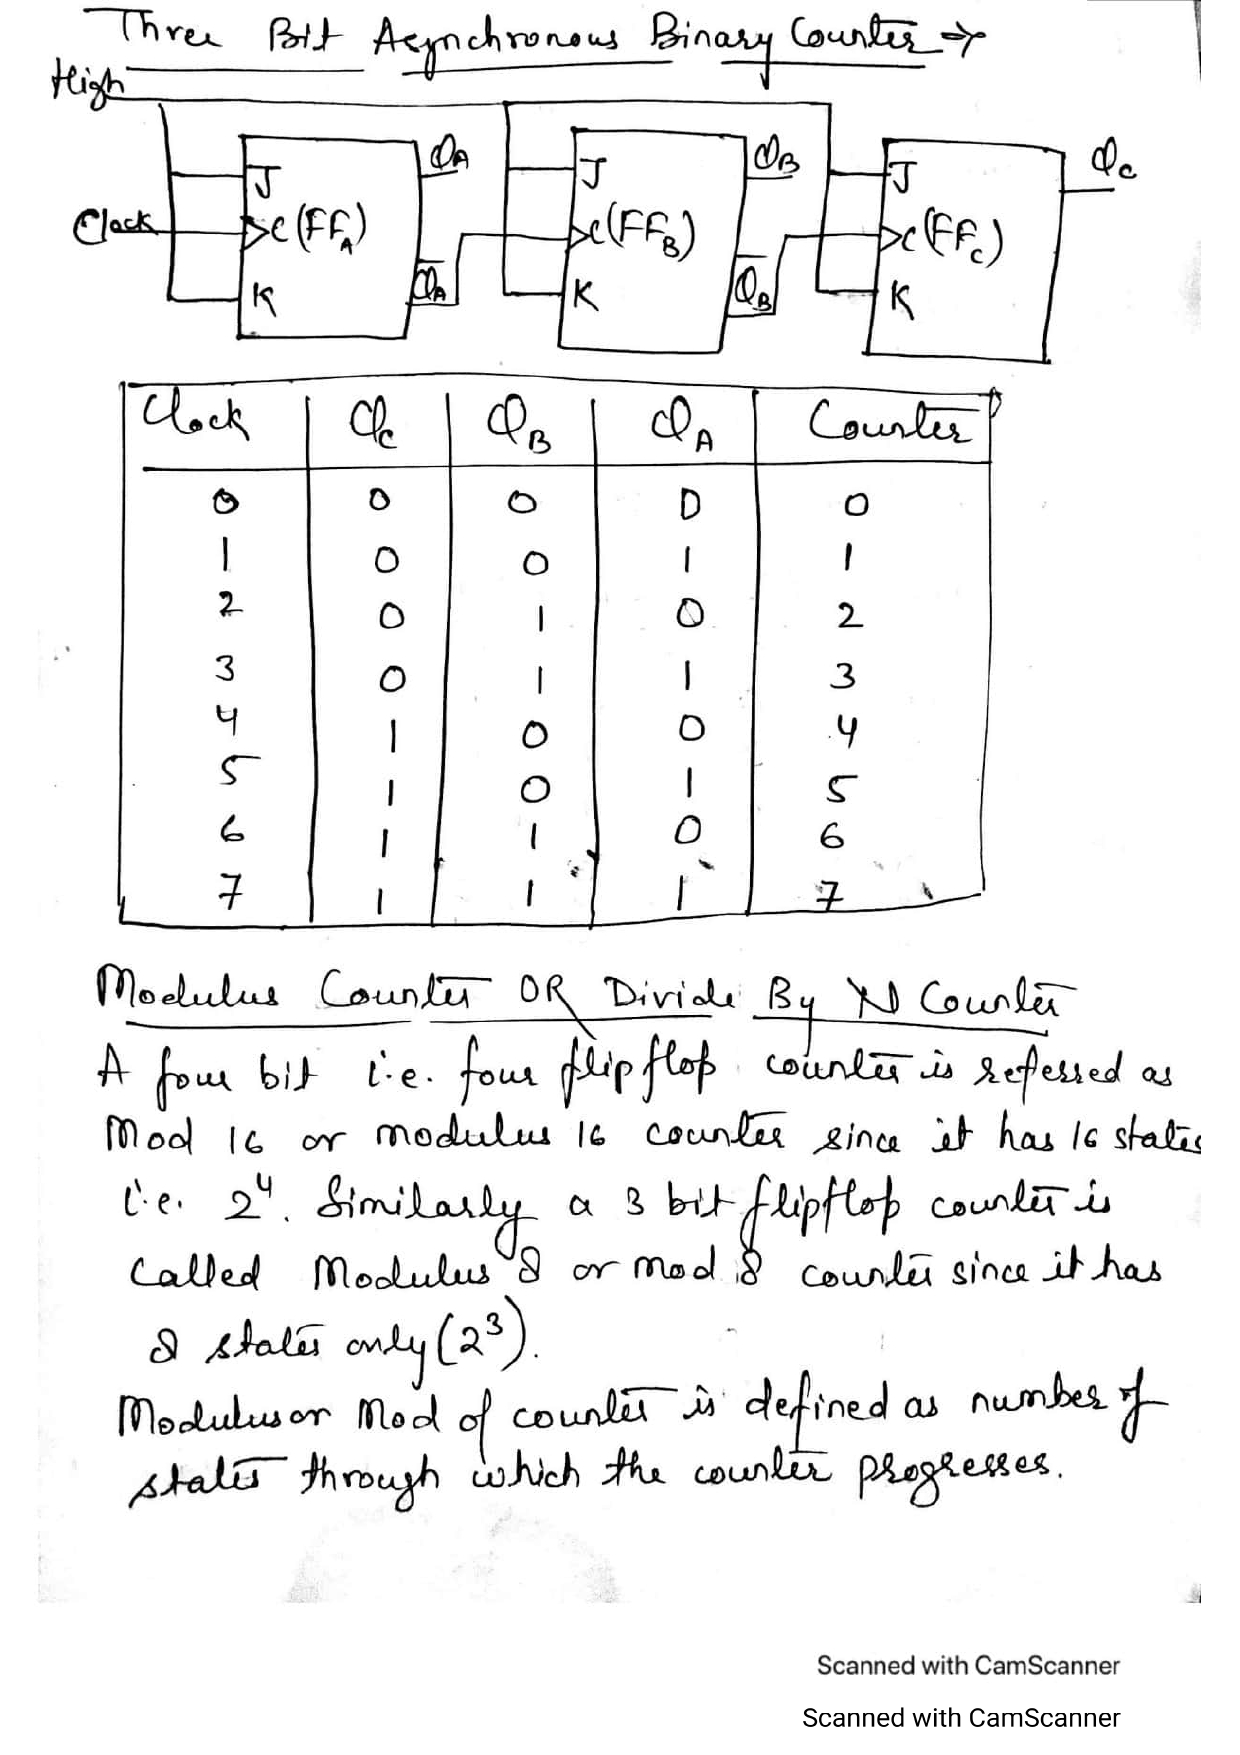 Three Bit Asynchronous Binary Counter →
High
J QA
Clock C (FFA)
K Q̅A
J QB
C (FFB)
K Q̅B
J QC
C (FFC)
K
Clock QC QB QA Counter
0 0 0 0 0
1 0 0 1 1
2 0 1 0 2
3 0 1 1 3
4 1 0 0 4
5 1 0 1 5
6 1 1 0 6
7 1 1 1 7
Modulus Counter OR Divide By N Counter
A four bit i.e. four flipflop counter is referred as
Mod 16 or modulus 16 counter since it has 16 states
i.e. 2⁴. Similarly a 3 bit flipflop counter is
called Modulus 8 or mod 8 counter since it has
8 states only (2³).
Modulus or Mod of counter is defined as number of
states through which the counter progresses.
Scanned with CamScanner
Scanned with CamScanner